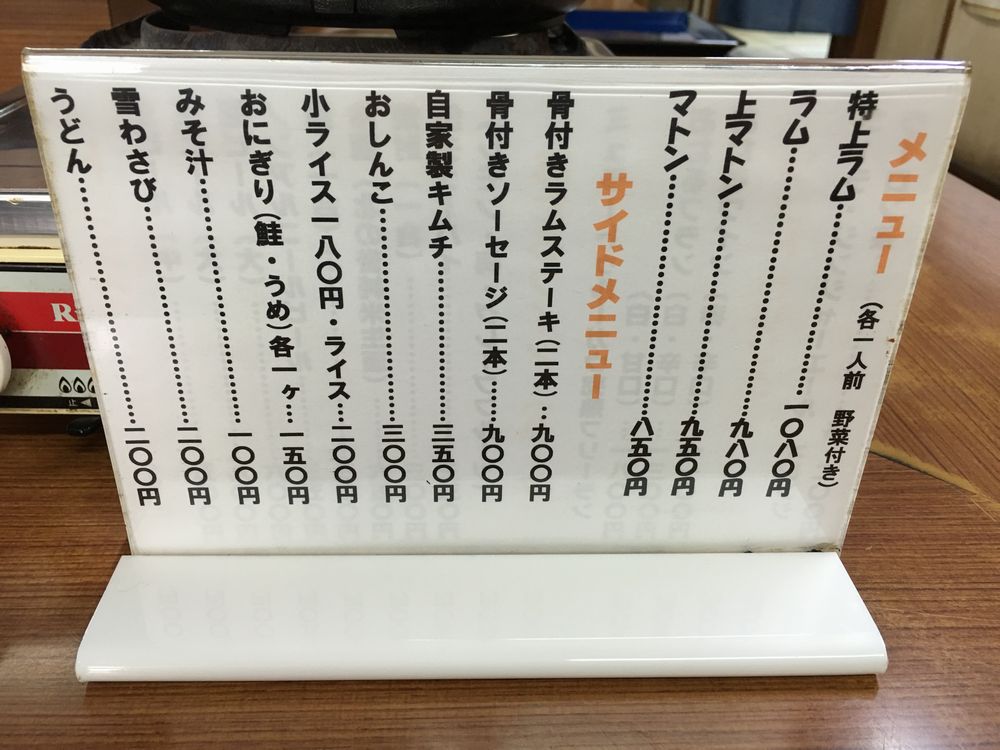 メニュー (各一人前 野菜付き)
特上ラム…一〇八〇円
ラム…九八〇円
上マトン…九五〇円
マトン…八五〇円
サイドメニュー
骨付きラムステーキ(二本)…九〇〇円
骨付きソーセージ(二本)…九〇〇円
自家製キムチ…三五〇円
おしんこ…三〇〇円
小ライス一八〇円・ライス…二〇〇円
おにぎり(鮭・うめ)各一ヶ…一五〇円
みそ汁…一〇〇円
雪わさび…二〇〇円
うどん…二〇〇円